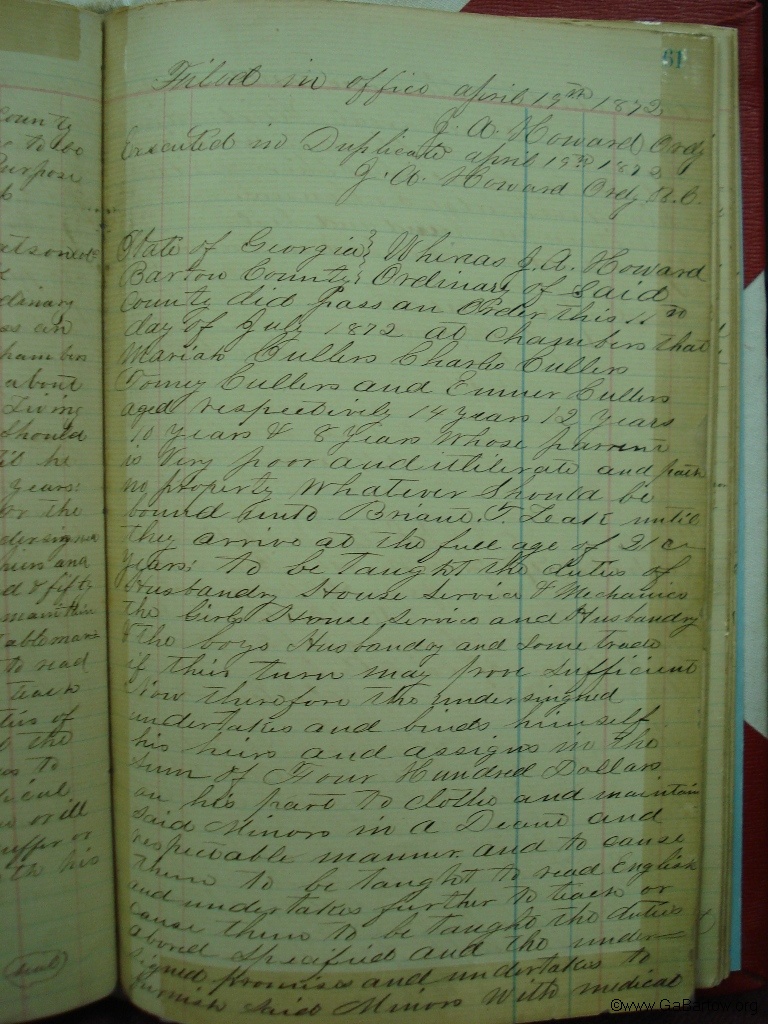 61
Filed in office april 19th 1872
J. A. Howard Ordy
Executed in Duplicate april 19th 1872
J. A. Howard Ordy B.C.
State of Georgia } Whereas J. A. Howard
Bartow County } Ordinary of Said
County did pass an Order this 11th
day of July 1872 at Chambers that
Mariah Cullers Charles Cullers
Tomey Cullers and Emmer Cullers
aged respectively 14 years 12 years
10 years & 8 years Whose parent
is Very poor and illiterate and hath
no property Whatever Should be
bound unto Briant. T. Leak until
they arrive at the full age of 21
years: to be taught the duties of
Husbandry House Service & Mechanics
the Girls House Service and Husbandry
& the boys Husbandry and Some trade
if their turn may prove Sufficient
Now therefore the undersigned
undertakes and binds himself
his heirs and assigns in the
Sum of Four Hundred Dollars
on his part to clothe and maintain
said Minors in a Decent and
respectable manner and to cause
them to be taught to read English
and undertakes further to teach or
cause them to be taught the duties
above Specified and the under-
signed promises and undertakes to
furnish Said Minors With medical
County
to be
Purpose
dinary
an
Chambers
about
Living
Should
til he
years:
or the
dersigned
heirs and
d & fifty
maintain
table man-
to read
teach
ties of
the
to
dical
or ill
suffer or
th his
Seal
©www.GaBartow.org